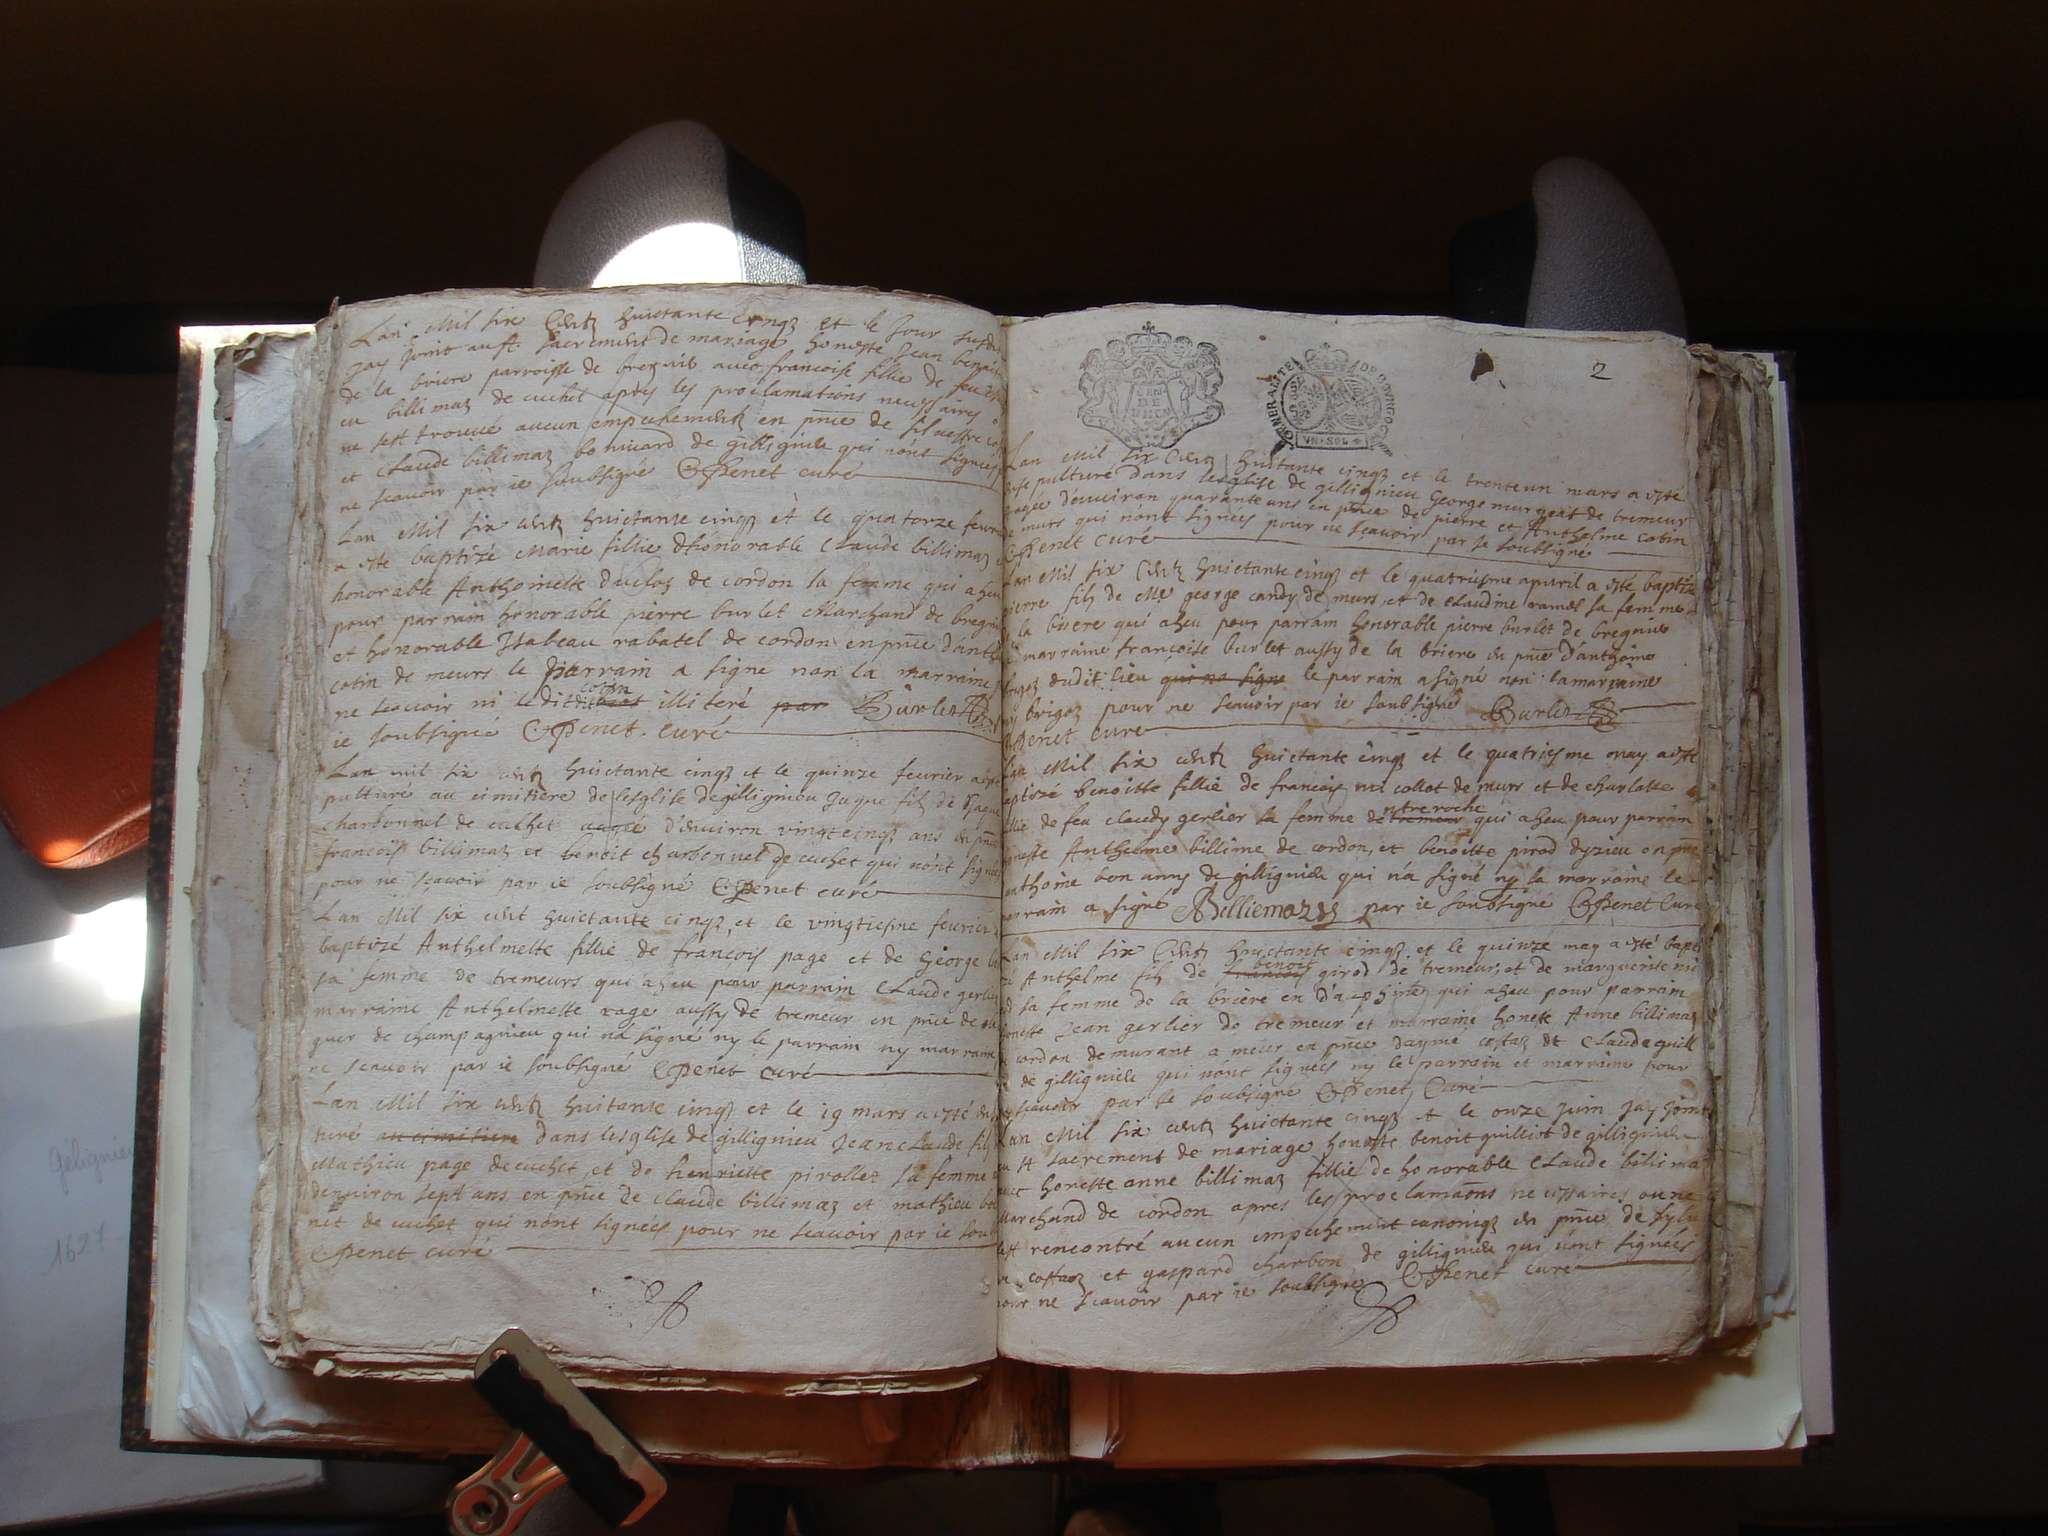 Lan Mil six Centz huictante cinqz et le Jour susdit
Jay Joint au st. sacrement de mariage honeste Jean
de la briere parroisse de bregnie avec francoise fillie de feu
billimaz de cuchet apres les proclamations necessaires
ne sest trouvé aucun empechementz en pnce de silvestre
et Claude billimaz bonuard de gillignieu qui nont signés
ne scavoir par ie soubsigné Penet curé
Lan Mil six centz huictante cinqz et le quatorze
a este baptizé Marie fillie dhonorable Claude billimaz
honorable Anthoinette duclos de cordon sa femme qui a heu
pour parrain honorable pierre burlet Marchand de
et honorable Isabeau rabatel de cordon en pnce
cotin de meurs le parrain a signé non la marraine
ne scavoir ni ledit cotin illiteré par Burlet
ie soubsigné Penet curé
Lan mil six centz huictante cinqz et le quinze fevrier
pulturé au cimitiere de lesglise de gillignieu Jaque filz de
charbonnel de cuchet aagée d'environ vingt cinqz ans en pnce
francois billimaz et benoit charbonnel de cuchet qui nont signés
pour ne scavoir par ie soubsigné Penet curé
Lan Mil six cent huictante cinqz et le vingtiesme fevrier
baptizé Anthelmette fillie de francois page et de George
sa femme de tremeurs qui a heu pour parrain Claude gerlier
marraine Anthelmette page aussy de tremeur en pnce de
de champagnieu qui na signé ny le parrain ny marraine
ne scavoir par ie soubsigné Penet curé
Lan Mil six centz huictante cinqz et le 19 mars a esté
turé au cimitiere dans lesglise de gillignieu Jean claude filz
Mathieu page de cuchet, et de henriette pirollet sa femme
denviron sept ans en pnce de claude billimaz et mathieu
de cuchet qui nont signées pour ne scavoir par ie
Penet curé
GENERALITE DE BOURGOGNE
UN SOL
2
Lan Mil six Centz huictante cinqz et le trenteun mars a esté
sepulturé dans lesglise de gillignieu George murgeat de tremeur
aagée denviron quarante ans en pnce de pierre et Anthelme cotin
de murs qui nont signées pour ne scavoir par ie soubsigné
Penet curé
Lan Mil six Centz huictante cinqz et le quatriesme apvril a esté baptizé
pierre filz de Me george candy de murs, et de claudine ramel sa femme
la briere qui a heu pour parrain honorable pierre burlet de bregnie
marraine francoise burlet aussy de la briere en pnce d'anthoine
brigoz dudit lieu qui na signé le parrain a signé non la marraine
brigoz pour ne scavoir par ie soubsigné Burlet
Penet curé
Lan Mil six centz huictante cinqz et le quatriesme may a esté
baptizé benoitte fillie de francois collet de murs et de charlotte
fillie de feu claudy gerlier sa femme de tremeur qui a heu pour parrain
honeste Anthelme billime de cordon, et benoitte pirod dyzieu en pnce
anthoine bon amy de gillignieu qui na signé ny la marraine le
parrain a signé Billiemaz par ie soubsigné Penet Curé
Lan Mil six Centz huictante cinqz et le quinze may a esté bapti
zé Anthelme filz de francois benoit girod de tremeur, et de marguerite
sa femme de la briere en d'auphine qui a heu pour parrain
honeste Jean gerlier de tremeur et marraine honeste Anne billimaz
de cordon demurant a meur en pnce dayme costaz et Claude
de gillignieu qui nont signées ny le parrain et marraine pour
ne scavoir par ie soubsigné Penet Curé
Lan Mil six centz huictante cinqz et le onze Juin Jay Joint
au st sacrement de mariage honeste benoit guilliot de gillignieu
avec honeste anne billimaz fillie de honorable Claude billima
Marchand de cordon apres les proclamaons necessaires ou ne
sest rencontré aucun empechement canoniqz en pnce de
costaz et gaspard charbon de gillignieu qui nont signées
pour ne scavoir par ie soubsigné Penet curé
Gélignieu
1627